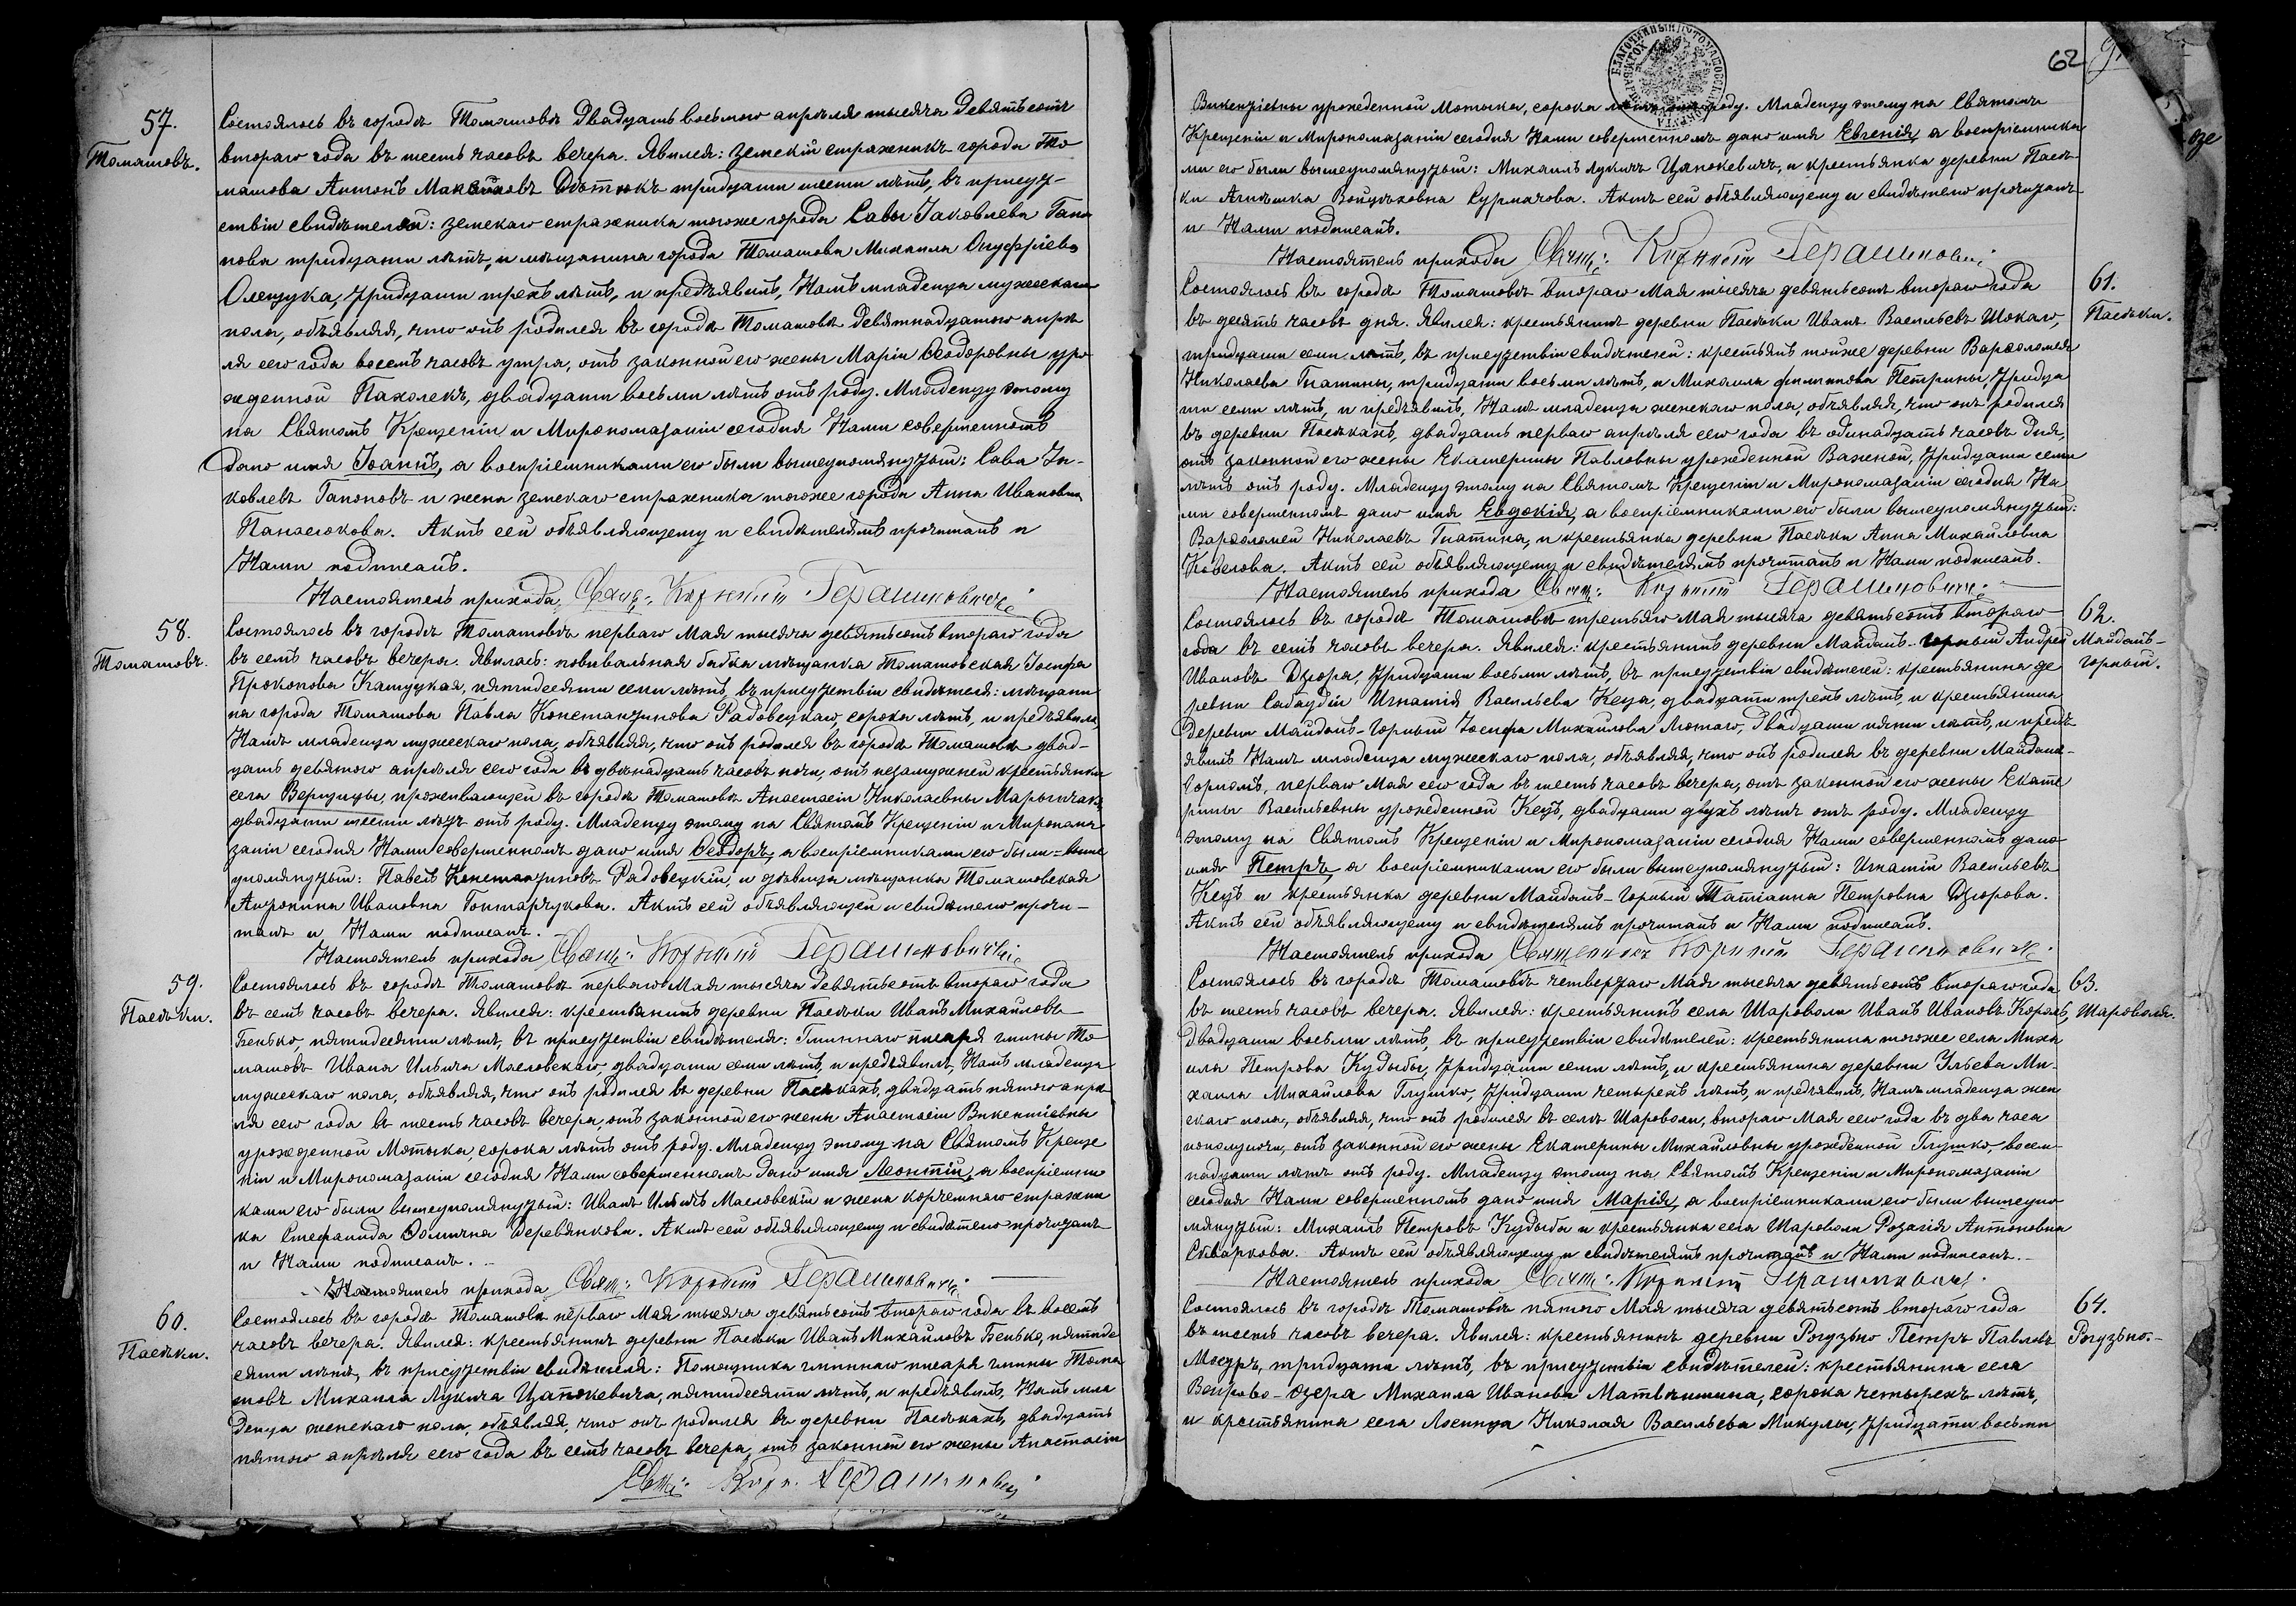 57.
Томашовъ.
Состоялось въ городѣ Томашовѣ двадцать восьмого апрѣля тысяча девятьсотъ
второго года въ шесть часовъ вечера. Явился: земскій стражникъ города То
машова Антонъ Дѣтюкъ тридцати шести лѣтъ, въ присут-
ствіи свидѣтелей: земскаго стражника тогоже города Савы Іаковлева Гапо
нова тридцати лѣтъ, и мѣщанина города Томашова Михаила Онуфріева
Олещука, тридцати трехъ лѣтъ, и предъявилъ Намъ младенца мужескаго
пола, объявляя, что онъ родился въ городѣ Томашовѣ девятнадцатого апрѣ
ля сего года восемь часовъ утра, отъ законной его жены Маріи Ѳеодоровны уро
жденной Пахолекъ, двадцати восьми лѣтъ отъ роду. Младенцу этому
на Святомъ Крещеніи и Миропомазаніи сегодня Нами совершенномъ
дано имя Іоаннъ, а воспріемниками его были вышеупомянутый: Сава Іа-
ковлевъ Гапоновъ и жена земскаго стражника тогоже города Анна Ивановна
Панасюкова. Актъ сей объявляющему и свидѣтелямъ прочитанъ и
Нами подписанъ.
Настоятель прихода Свящ: Корнилій Герашиковичъ
58.
Томашовъ.
Состоялось въ городѣ Томашовѣ перваго Мая тысяча девятьсотъ второго года
въ семь часовъ вечера. Явилась: повивальная бабка мѣщанка Томашовская Іосифа
Прокопова Кашуцкая, пятидесяти семи лѣтъ, въ присутствіи свидѣтеля: мѣщани
на города Томашова Павла Константинова Радовецкаго, сорока лѣтъ, и предъявила
Намъ младенца мужескаго пола, объявляя, что онъ родился въ городѣ Томашовѣ двад-
цать девятого апрѣля сего года въ двѣнадцать часовъ ночи, отъ незамужней крестьянки
села Верщицы, проживающей въ городѣ Томашовѣ Анастасіи Николаевны Марынчакъ
двадцати шести лѣтъ отъ роду. Младенцу этому на Святомъ Крещеніи и Миропома
заніи сегодня Нами совершенномъ дано имя Ѳеодоръ, а воспріемниками его были-выше
упомянутый: Павелъ Константиновъ Радовецкій, и дѣвица мѣщанка Томашовская
Антонина Ивановна Гонтарчукова. Актъ сей объявляющей и свидѣтелю прочи-
танъ и Нами подписанъ.
Настоятель прихода Свящ: Корнилій Герашиковичъ
59.
Пасѣки.
Состоялось въ городѣ Томашовѣ перваго Мая тысяча девятьсотъ второго года
въ семь часовъ вечера. Явился: крестьянинъ деревни Пасѣки Иванъ Михайловъ
Бенько, пятидесяти лѣтъ, въ присутствіи свидѣтеля: Гминнаго писаря гмины То
машовъ Ивана Ильича Масловскаго, двадцати семи лѣтъ, и предъявилъ Намъ младенца
мужескаго пола, объявляя, что онъ родился въ деревни Пасѣкахъ, двадцать пятого апрѣ
ля сего года въ шесть часовъ вечера, отъ законной его жены Анастасіи Викентіевны
урожденной Мотыка, сорока лѣтъ отъ роду. Младенцу этому на Святомъ Креще
ніи и Миропомазаніи сегодня Нами совершенномъ дано имя Леонтій, а воспріемни
ками его были вышеупомянутый: Иванъ Ильичъ Масловскій и жена корчемнаго стражни
ка Стефанида Ѳомична Деревянкова. Актъ сей объявляющему и свидѣтелю прочитанъ
и Нами подписанъ.
Настоятель прихода Свящ: Корнилій Герашиковичъ
60.
Пасѣки.
Состоялось въ городѣ Томашовѣ перваго Мая тысяча девятьсотъ второго года въ восемь
часовъ вечера. Явился: крестьянинъ деревни Пасѣки Иванъ Михайловъ Бенько, пятиде
сяти лѣтъ, въ присутствіи свидѣтеля: Помощника гминнаго писаря гмины Тома
шовъ Михаила Лукича Цапокевича, пятидесяти лѣтъ, и предъявилъ Намъ мла
денца женскаго пола, объявляя, что онъ родился въ деревни Пасѣкахъ, двадцать
пятого апрѣля сего года въ семь часовъ вечера, отъ законной его жены Анастасіи
Свящ: Корн. Герашиковичъ
62
Викентіевны урожденной Мотыка, сорока лѣтъ отъ роду. Младенцу этому на Святомъ
Крещеніи и Миропомазаніи сегодня Нами совершенномъ дано имя Евгенія, а воспріемника
ми его были вышеупомянутый: Михаилъ Лукичъ Цапокевичъ, и крестьянка деревни Пасѣ-
ки Агнешка Войцеховна Сурмачова. Актъ сей объявляющему и свидѣтелю прочитанъ
и Нами подписанъ.
Настоятель прихода Свящ: Корнилій Герашиковичъ
61.
Пасѣки.
Состоялось въ городѣ Томашовѣ второго Мая тысяча девятьсотъ второго года
въ десять часовъ дня. Явился: крестьянинъ деревни Пасѣки Иванъ Васильевъ Шокало,
тридцати семи лѣтъ, въ присутствіи свидѣтелей: крестьянъ тойже деревни Варѳоломея
Николаева Гнатины, тридцати восьми лѣтъ, и Михаила Филипова Петрины, тридца
ти семи лѣтъ, и предъявилъ Намъ младенца женскаго пола, объявляя, что онъ родился
въ деревни Пасѣкахъ, двадцать перваго апрѣля сего года въ одинадцать часовъ дня,
отъ законной его жены Екатерины Павловны урожденной Важной, тридцати семи
лѣтъ отъ роду. Младенцу этому на Святомъ Крещеніи и Миропомазаніи сегодня На
ми совершенномъ дано имя Евдокія, а воспріемниками его были вышеупомянутый:
Варѳоломей Николаевъ Гнатина, и крестьянка деревни Пасѣки Анна Михайловна
Ковелова. Актъ сей объявляющему и свидѣтелямъ прочитанъ и Нами подписанъ.
Настоятель прихода Свящ: Корнилій Герашиковичъ
62.
Майданъ-
горный.
Состоялось въ городѣ Томашовѣ третьяго Мая тысяча девятьсотъ второго
года въ семь часовъ вечера. Явился: крестьянинъ деревни Майданъ-горный Андрей
Ивановъ Дзюра, тридцати восьми лѣтъ, въ присутствіи свидѣтелей: крестьянина де
ревни Сабаудіи Игнатія Васильева Кеца, двадцати трехъ лѣтъ, и крестьянина
деревни Майданъ-горный Іосифа Михайлова Лютаго, двадцати пяти лѣтъ, и предъ
явилъ Намъ младенца мужескаго пола, объявляя, что онъ родился въ деревни Майданѣ-
горномъ, перваго Мая сего года въ шесть часовъ вечера, отъ законной его жены Екате
рины Васильевны урожденной Кецъ, двадцати двухъ лѣтъ отъ роду. Младенцу
этому на Святомъ Крещеніи и Миропомазаніи сегодня Нами совершенномъ дано
имя Петръ, а воспріемниками его были вышеупомянутый: Игнатій Васильевъ
Кецъ и крестьянка деревни Майданъ-горный Татіанна Петровна Дзюрова.
Актъ сей объявляющему и свидѣтелямъ прочитанъ и Нами подписанъ.
Настоятель прихода Священникъ Корнилій Герашиковичъ
63.
Шароволя.
Состоялось въ городѣ Томашовѣ четвертаго Мая тысяча девятьсотъ второго года
въ шесть часовъ вечера. Явился: крестьянинъ села Шароволи Иванъ Ивановъ Король,
двадцати восьми лѣтъ, въ присутствіи свидѣтелей: крестьянина тогоже села Миха
ила Петрова Кудыбы, тридцати семи лѣтъ, и крестьянина деревни Ульева Ми-
хаила Михайлова Глушко, тридцати четырехъ лѣтъ, и предъявилъ Намъ младенца жен
скаго пола, объявляя, что онъ родился въ селѣ Шароволи, второго Мая сего года въ два часа
пополуночи, отъ законной его жены Екатерины Михайловны урожденной Глушко, восем-
надцати лѣтъ отъ роду. Младенцу этому на Святомъ Крещеніи и Миропомазаніи
сегодня Нами совершенномъ дано имя Марія, а воспріемниками его были вышеупо
мянутый: Михаилъ Петровъ Кудыба и крестьянка села Шароволи Розалія Антоновна
Скваркова. Актъ сей объявляющему и свидѣтелямъ прочитанъ и Нами подписанъ.
Настоятель прихода Свящ: Корнилій Герашиковичъ
64.
Рогузьно.
Состоялось въ городѣ Томашовѣ пятого Мая тысяча девятьсотъ второго года
въ шесть часовъ вечера. Явился: крестьянинъ деревни Рогузьно Петръ Павловъ
Мазуръ, тридцати лѣтъ, въ присутствіи свидѣтелей: крестьянина села
Вепрово-озера Михаила Иванова Матвѣишина, сорока четырехъ лѣтъ,
и крестьянина села Лосинца Николая Васильева Микулы, тридцати восьми